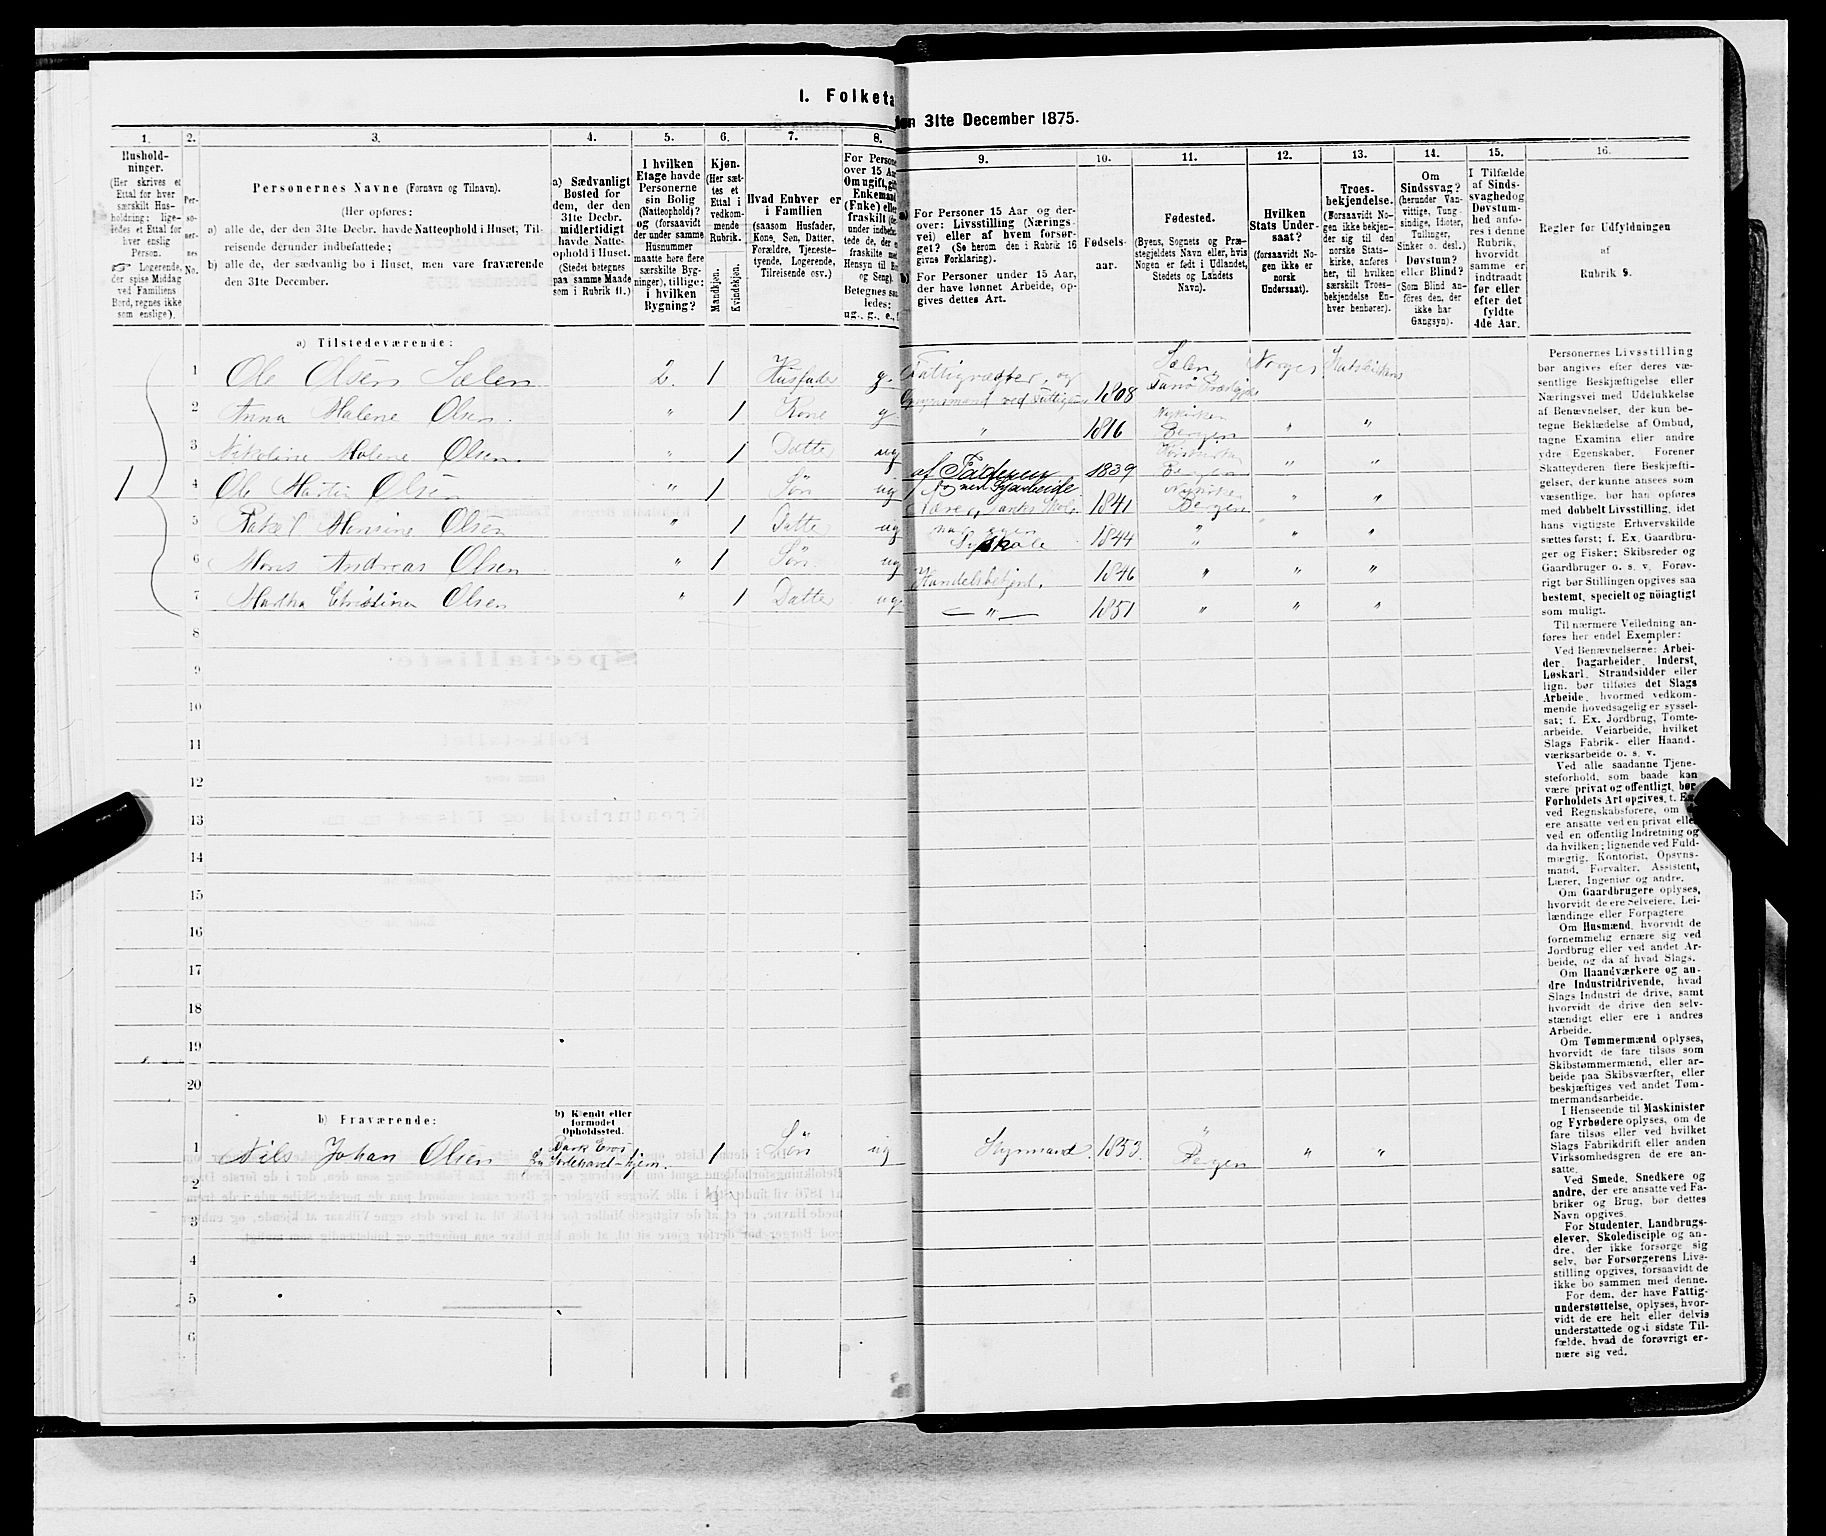 I. Folketa
den 31te December 1875.
1.
2.
3.
4.
5.
6.
7.
8.
Hushold-
ninger.
(Her skrives et
Ettal for hver
særskilt Hus-
holdning; lige-
ledes et Ettal for
hver enslig
Person.
☞ Logerende,
der spise Middag
ved Familiens
Bord, regnes ikke
som enslige).
Per-
so-
ner-
nes
No.
Personernes Navne (Fornavn og Tilnavn).
(Her opføres:
a) alle de, der den 31te Decbr. havde Natteophold i Huset, Til-
reisende derunder indbefattede;
b) alle de, der sædvanlig bo i Huset, men vare fraværende
den 31te December.
a) Sædvanligt
Bosted for
dem, der den
31te Decbr.
midlertidigt
havde Natte-
ophold i Huset.
(Stedet betegnes
paa samme Maade
som i Rubrik 11.)
I hvilken
Etage havde
Personerne
sin Bolig
(Natteophold)?
og (forsaavidt
der under samme
Husnummer
maatte høre flere
særskilte Byg-
ninger), tillige:
i hvilken
Bygning?
Kjøn.
(Her sæt-
tes et
Ettal i
vedkom-
mende
Rubrik.
Mandkjøn.
Kvindekjøn.
Hvad Enhver er
i Familien
(saasom Husfader,
Kone, Søn, Datter,
Forældre, Tjeneste-
tyende, Logerende,
Tilreisende osv.)
For Persone
over 15 Aa
Om ugift, gif
Enkemand
(Enke) elle
fraskilt (de
under indbefat-
tede de, der e
fraskilte me
Hensyn til B
og Seng).
Betegnes saa
ledes:
ug., g., e., f
9.
10.
11.
12.
13.
14.
15.
16.
a) For Personer 15 Aar og der-
over: Livsstilling (Nærings-
vei) eller af hvem forsør-
get? (Se herom den i Rubrik 16
givne Forklaring).
b) For Personer under 15 Aar,
der have lønnet Arbeide, op-
gives dettes Art.
Fødsels-
aar.
Fødested.
(Byens, Sognets og Præ-
stegjeldets Navn eller, hvis
Nogen er født i Udlandet,
Stedets og Landets
Navn).
Hvilken
Stats Under-
saat?
(forsaavidt No-
gen ikke er
norsk
Undersaat).
Troes-
bekjendelse.
(Forsaavidt No-
gen ikke bekjen-
der sig til den
norske Stats-
kirke, anføres
her, til hvilken
særskilt Troes-
bekjendelse En-
hver henhører).
Om
Sindssvag?
(herunder Van-
vittige, Tung-
sindige, Idioter,
Tullinger,
Sinker o. desl.)
Døvstum?
eller Blind?
(Som Blind an-
føres den, der
ikke har
Gangsyn).
I Tilfælde
af Sinds-
svaghed og
Døvstum-
hed anfø-
res i denne
Rubrik,
hvorvidt
samme er
indtraadt
før eller
efter det
fyldte
4de Aar.
Regler før Udfyldningen
af
Rubrik 9.
a) Tilstedeværende:
1 Ole Olsen Sælen 2. 1 Husfader g. Fattigvægter, og ved 1808 Sælen Norges
2 Anna Malene Olsen. " 1 Kone g. " 1816 Nykirken Bergen " "
3 Nikoline Malene Olsen. " 1 Datter ug af Faderen 1839 Bergen " "
1 4 Ole Martin Olsen " 1 Søn ug 1841 Nykirken Bergen " "
5 Olsen " 1 Datter ug Syskole 1844 " " "
6 Mons Andreas Olsen " 1 Søn ug Handelsbetjent. 1846 " " "
7 Martha Christine Olsen " 1 Datter ug — " — 1851 " " "
8
9
10
11
12
13
14
15
16
17
18
19
20
b) Fraværende:
b) Kjendt eller
formodet
Opholdssted.
1 Nils Johan Olsen Bark 1 Søn ug Styrmand. 1853 " Bergen " "
2
3
4
5
6
Personernes Livsstilling
bør angives efter deres væ-
sentlige Beskjæftigelse eller
Næringsvei med Udelukkelse
af Benævnelser, der kun be-
tegne Beklædelse af Ombud,
tagne Examina eller andre
ydre Egenskaber. Forener
Skatteyderen flere Beskjæfti-
gelser, der kunne ansees som
væsentlige, bør han opføres
med dobbelt Livsstilling, idet
hans vigtigste Erhvervskilde
sættes først; f. Ex. Gaardbru-
ger og Fisker; Skibsreder og
Gaardbruger o. s. v. Forøv-
rigt bør Stillingen opgives saa
bestemt, specielt og nöiagtigt
som muligt.
Til nærmere Veiledning an-
føres her endel Exempler:
Ved Benævnelserne: Arbei-
der, Dagarbeider, Inderst,
Løskarl, Strandsidder eller
lign. bør tilføies det Slags
Arbeide, hvormed vedkom-
mende hovedsagelig er syssel-
sat; f. Ex. Jordbrug, Tomte-
arbeide, Veiarbeide, hvilket
Slags Fabrik- eller Haand-
værksarbeide o. s. v.
Ved alle saadanne Tjene-
steforhold, som baade kan
være privat og offentligt, bør
Forholdets Art opgives, t. E
ved Regnskabsførere, om
ere ansatte ved en privat elle
ved en offentlig Indretning og
da hvilken; lignende ved Fuld-
mægtig, Kontorist, Opsyns-
mand, Forvalter, Assistent,
Lærer, Ingeniør og andre.
Om Gaardbrugere oplyses,
hvorvidt de ere Selveiere, Lei-
lændinge eller Forpagtere
Om Husmænd, hvorvidt de
fornemmelig ernære sig ved
Jordbrug eller ved andet Ar-
beide, og da af hvad Slags.
Om Haandværkere og an-
dre Industridrivende, hvad
Slags Industri de drive, samt
hvorvidt de drive den selv-
stændigt eller ere i andres
Arbeide.
Om Tømmermænd oplyses,
hvorvidt de fare tilsøs som
Skibstømmermænd, eller ar-
beide paa Skibsværfter, eller
beskjæftiges ved andet Tøm-
mermandsarbeide.
I Henseende til Maskinister
og Fyrbødere oplyses, om de
fare tilsøs eller ved hvilket
Slags Fabrikdrift eller anden
Virksomhedsgren de ere an-
satte.
Ved Smede, Snedkere og
andre, der ere ansatte ved Fa-
briker og Brug, bør dettes
Navn opgives.
For Studenter, Landbrugs-
elever, Skoledisciple og an-
dre, der ikke forsørge sig
selv, bør Forsørgerens Livs-
stilling opgives, forsaavidt de
ikke bo sammen med denne.
For dem, der have Fattig-
understøttelse, oplyses, hvor-
vidt de ere helt eller delvis
understøttede og i sidste Til-
fælde, hvad de forøvrigt er-
nære sig ved.